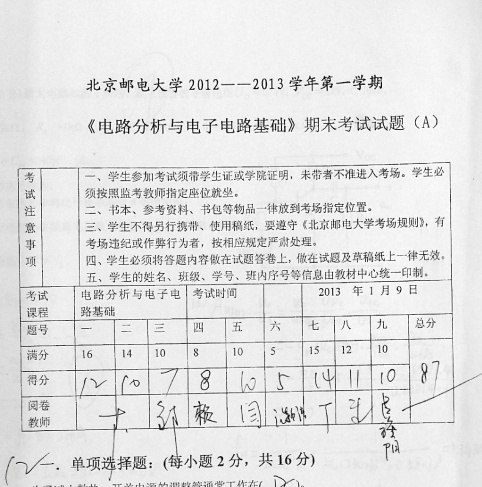 北京邮电大学 2012——2013 学年第一学期
《电路分析与电子电路基础》期末考试试题（A）
考试注意事项
一、学生参加考试须带学生证或学院证明，未带者不准进入考场。学生必
须按照监考教师指定座位就坐。
二、书本、参考资料、书包等物品一律放到考场指定位置。
三、学生不得另行携带、使用稿纸，要遵守《北京邮电大学考场规则》，有
考场违纪或作弊行为者，按相应规定严肃处理。
四、学生必须将答题内容做在试题答卷上，做在试题及草稿纸上一律无效。
五、学生的姓名、班级、学号、班内序号等信息由教材中心统一印制。
考试课程 电路分析与电子电路基础 考试时间 2013 年 1 月 9 日
题号 一 二 三 四 五 六 七 八 九 总分
满分 16 14 10 8 10 5 15 12 10
得分 12 10 7 8 10 5 14 11 10 87
阅卷教师
12 一．单项选择题：(每小题 2 分，共 16 分)